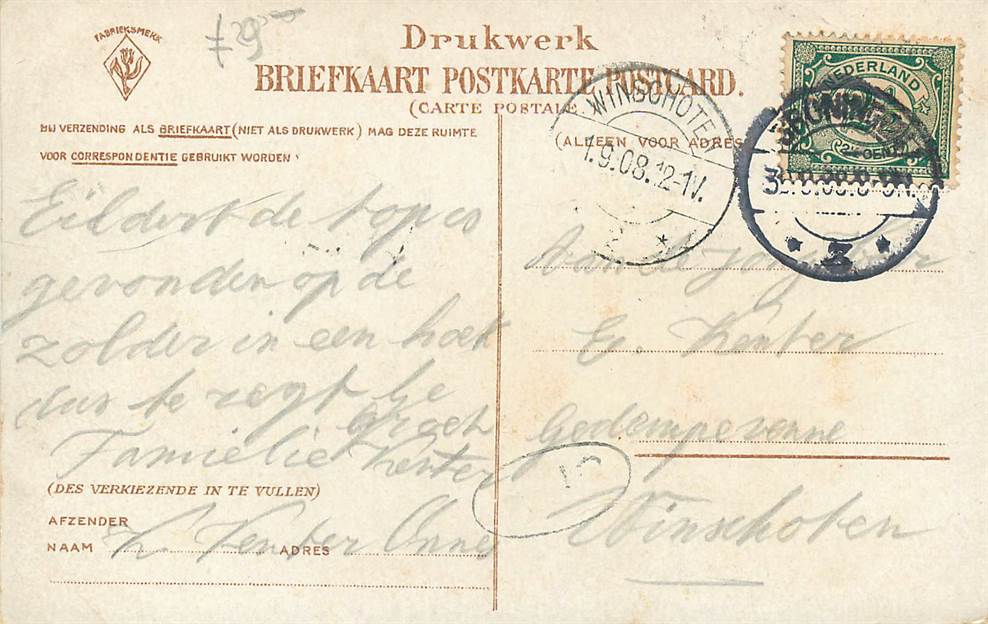 FABRIEKSMERK
Drukwerk
BRIEFKAART POSTKARTE POSTCARD.
(CARTE POSTALE
BIJ VERZENDING ALS BRIEFKAART (NIET ALS DRUKWERK) MAG DEZE RUIMTE
VOOR CORRESPONDENTIE GEBRUIKT WORDEN
(ALLEEN VOOR ADRES
WINSCHOTEN
1.9.08.12-1V.
NEDERLAND
2
Eildert de top is
gevonden op de
zolder in een hoek
dus te zegt
Groet
Familie Kenter
(DES VERKIEZENDE IN TE VULLEN)
AFZENDER
NAAM K. Kenter ADRES Onne
Aan de
E. Kenter
Gedempevenne
Winschoten